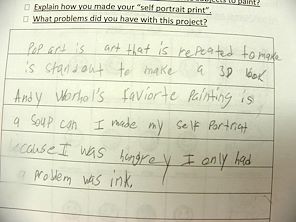 subjects to paint?
□ Explain how you made your "self portrait print".
□ What problems did you have with this project?
Pop art is art that is repeated to make
is standout to make a 3D look
Andy Worhol's faviorte Painting is
a soup can I made my self Portriat
cause I was hungrey I only had
a problem was ink.